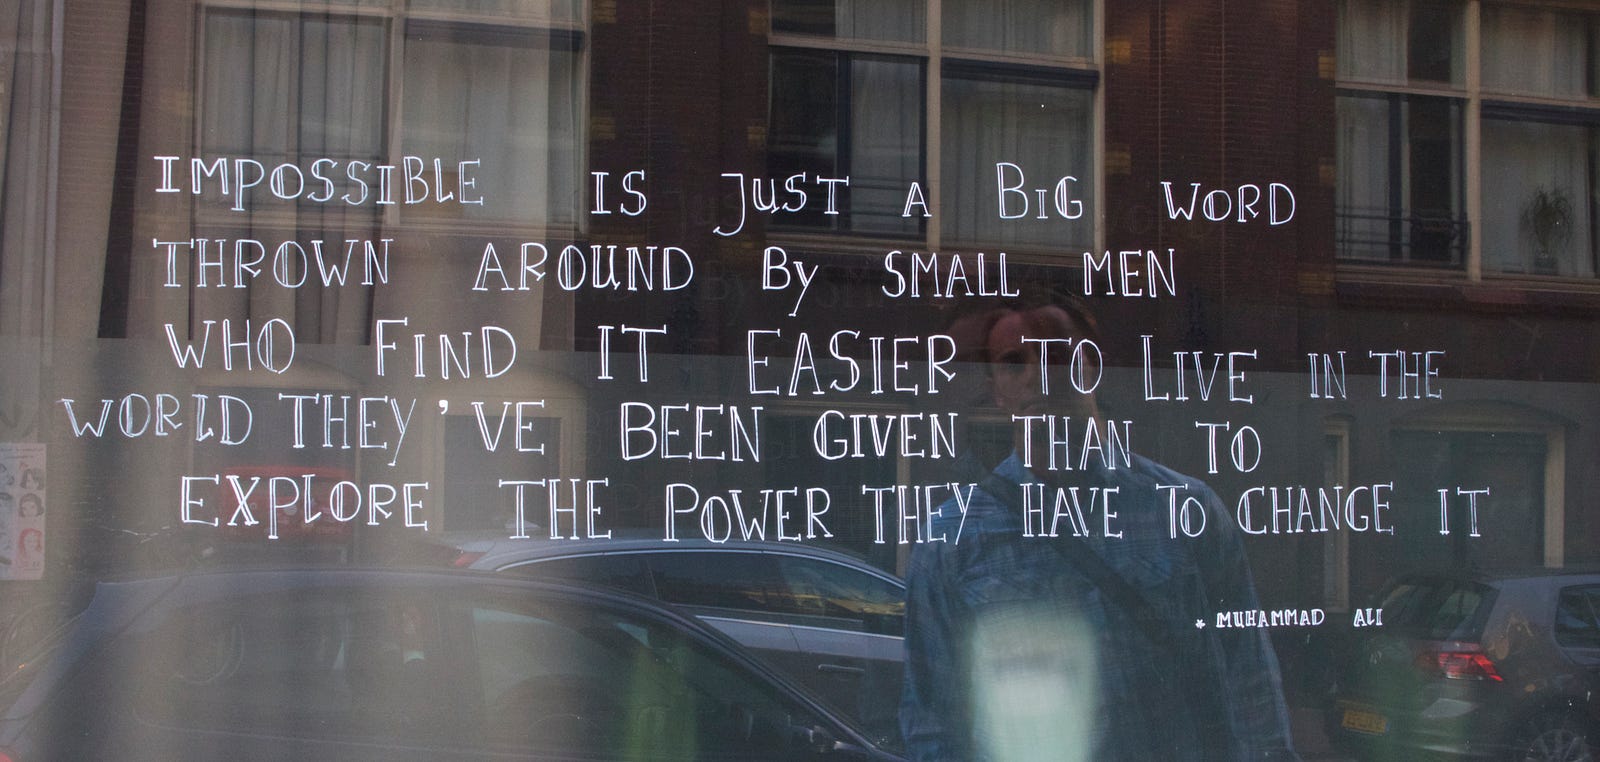 IMPOSSIBLE IS JUST A BIG WORD
THROWN AROUND By SMALL MEN
WHO FIND IT EASIER TO LIVE IN THE
WORLD THEY'VE BEEN GIVEN THAN TO
EXPLORE THE POWER THEY HAVE TO CHANGE IT
* MUHAMMAD ALI